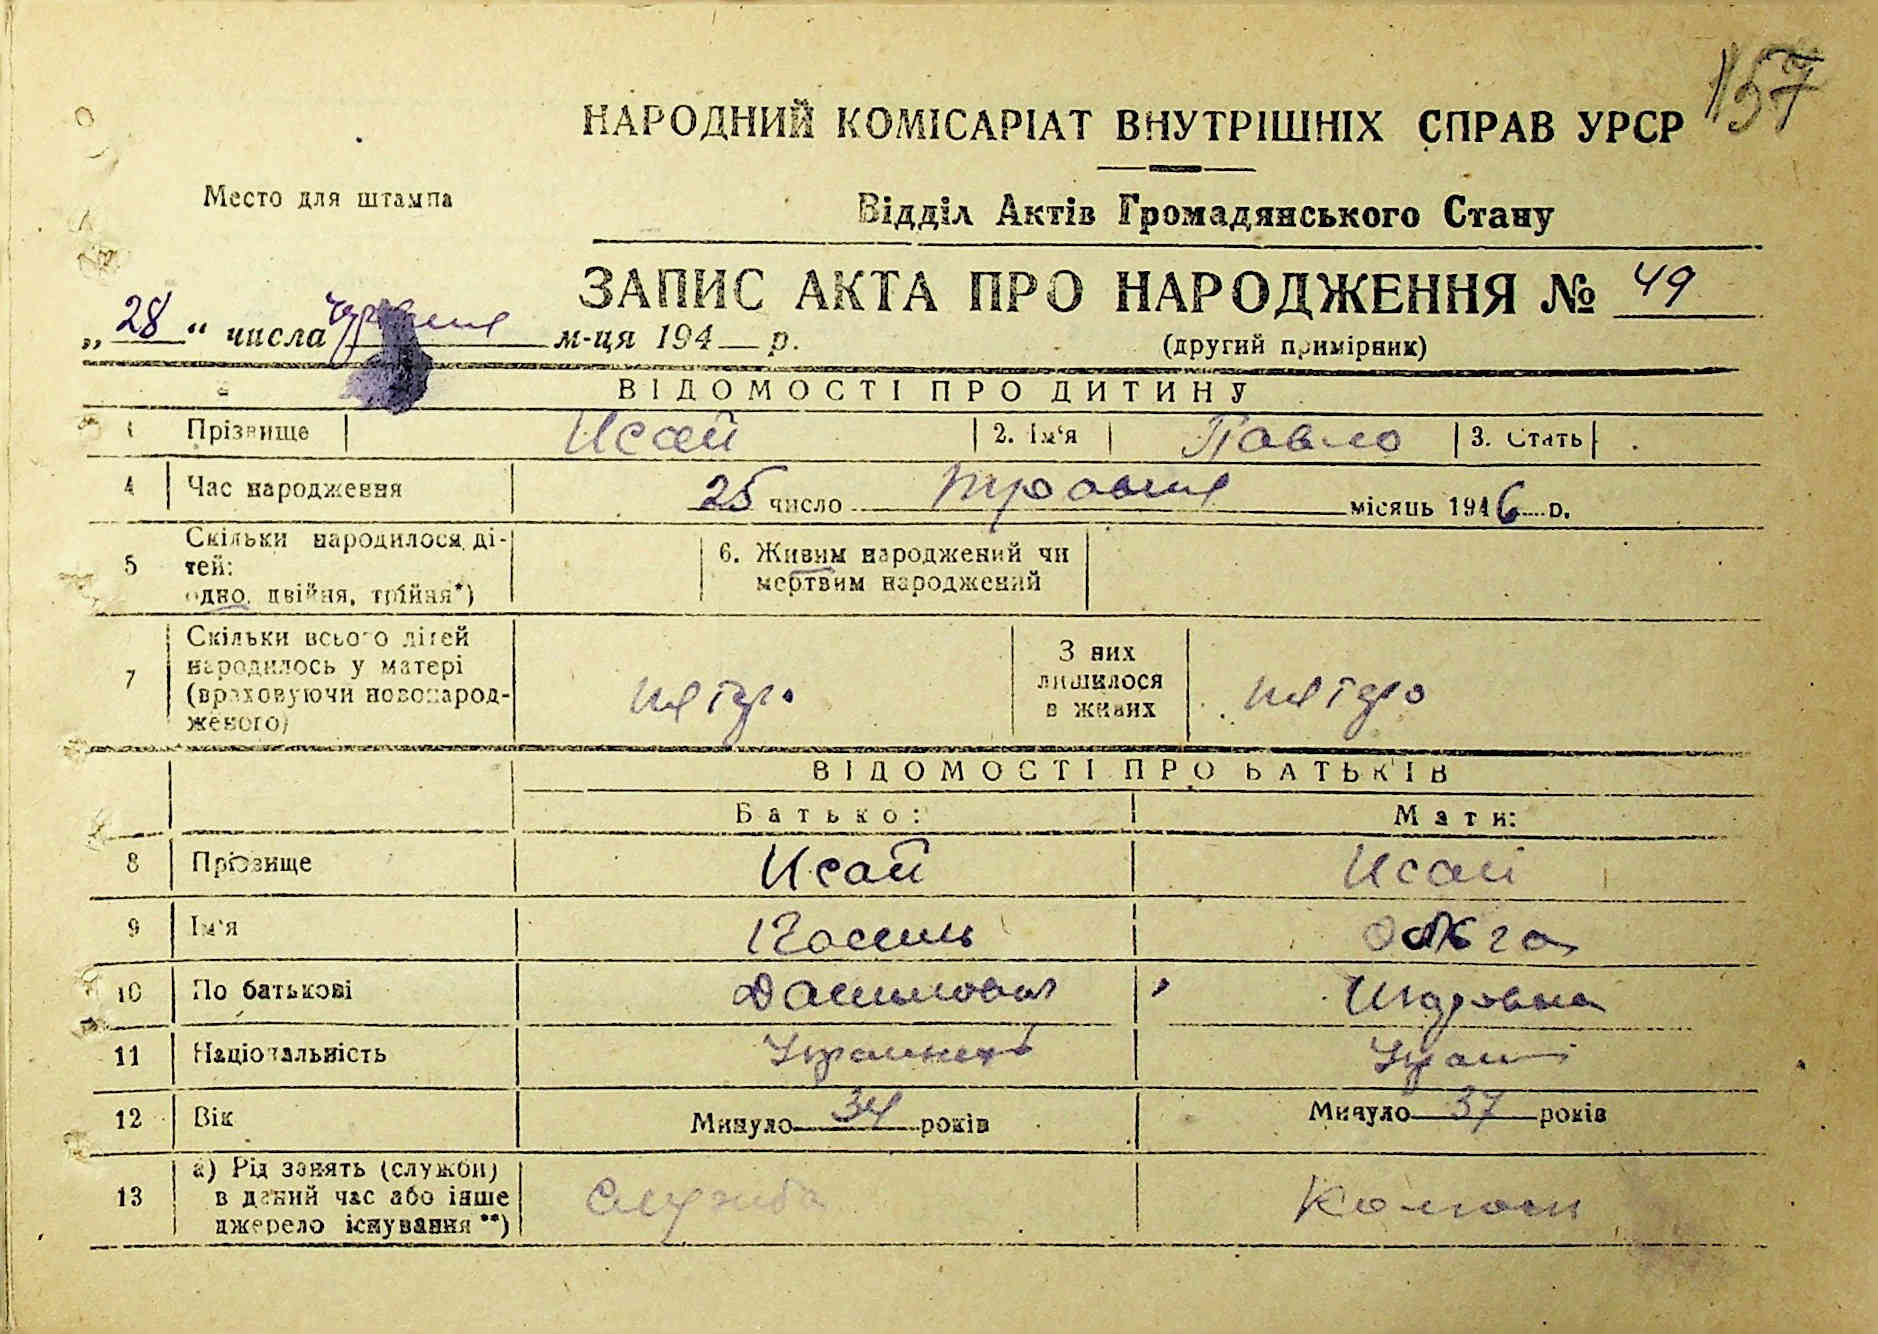 157
НАРОДНИЙ КОМІСАРІАТ ВНУТРІШНІХ СПРАВ УРСР
Место для штампа
Відділ Актів Громадянського Стану
ЗАПИС АКТА ПРО НАРОДЖЕННЯ № 49
„28“ числа червня м-ця 194 р.
(другий примірник)
ВІДОМОСТІ ПРО ДИТИНУ
1 Прізвище Исай 2. Ім'я Павло 3. Стать
4 Час народження 25 число травня місяць 1946 р.
5 Скільки народилося ді-
тей:
одно, двійня, трійня*)
6. Живим народжений чи
мертвим народжений
7 Скільки всього дітей
народилось у матері
(враховуючи новонарод-
женого)
пятеро
З них
лишилося
в живих
пятеро
ВІДОМОСТІ ПРО БАТЬКІВ
Батько: Мати:
8 Прізвище Исай Исай
9 Ім'я Ольга
10 По батькові
11 Національність Украинец Укра
12 Вік Минуло 34 років Минуло 37 років
13 а) Рід занять (служби)
в даний час або інше
джерело існування **)
Служба